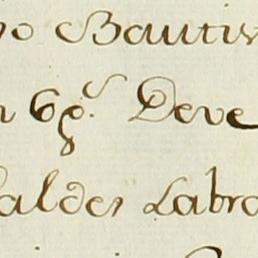 no Bautis
n 6g.s Deve
aldes Labra